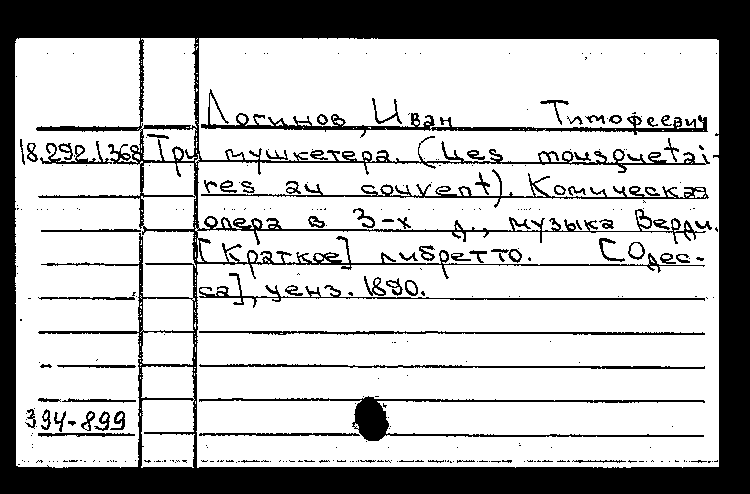 Логинов, Иван Тимофеевич.
18.292.1.368 Три мушкетера. (Les mousquetai-
res au couvent). Комическая
опера в 3-х д., музыка Верди.
[Краткое] либретто. [Одес-
са], ценз. 1890.
394-899